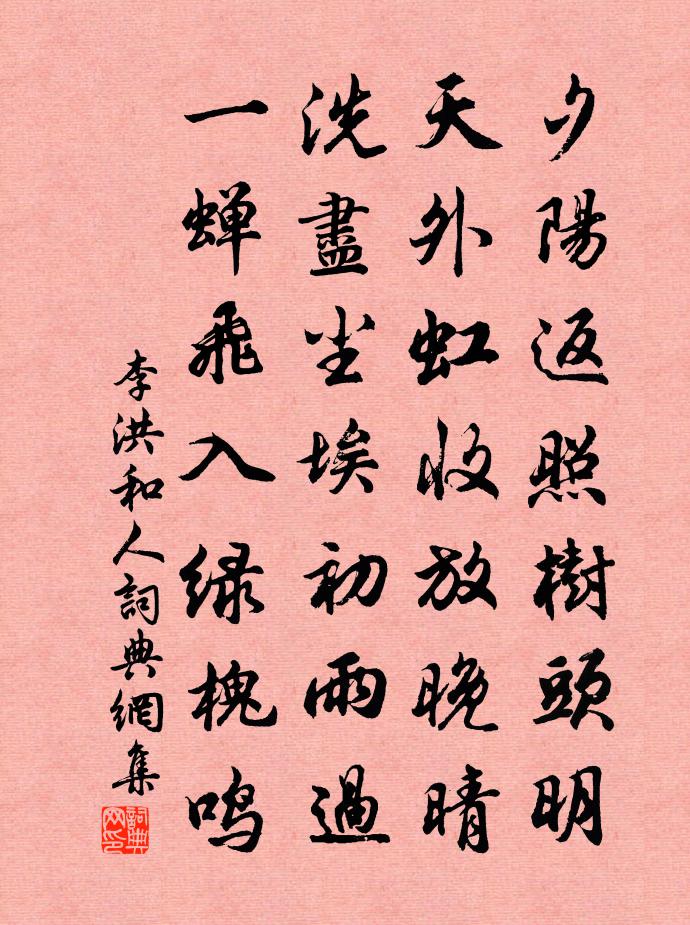 夕陽返照樹頭明
天外虹收放晚晴
洗盡尘埃初雨過
一蝉飛入绿槐鸣
李洪和人詞典網集
詞典网印